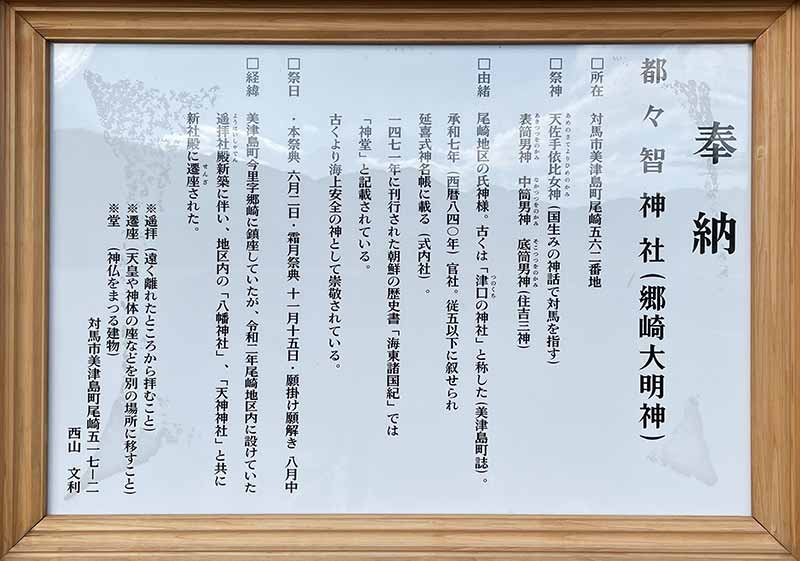 奉納
都々智神社(郷崎大明神)
□所在 対馬市美津島町尾崎五六二番地
□祭神 天佐手依比女神(国生みの神話で対馬を指す)
あめのさてよりひめのかみ
表筒男神 中筒男神 底筒男神(住吉三神)
あきつつをのかみ なかつつをのかみ そこつつをのかみ
□由緒 尾崎地区の氏神様。古くは「津口の神社」と称した(美津島町誌)。
つのくち
承和七年(西暦八四〇年)官社。従五以下に叙せられ
延喜式神名帳に載る(式内社)。
一四七一年に刊行された朝鮮の歴史書「海東諸国紀」では
「神堂」と記載されている。
古くより海上安全の神として崇敬されている。
□祭日 ・本祭典 六月二日・霜月祭典 十一月十五日・願掛け願解き 八月中
□経緯 美津島町今里字郷崎に鎮座していたが、令和二年尾崎地区内に設けていた
遥拝社殿新築に伴い、地区内の「八幡神社」、「天神神社」と共に
ようはいしゃでん
新社殿に遷座された。
せんざ
※遥拝(遠く離れたところから拝むこと)
※遷座(天皇や神体の座などを別の場所に移すこと)
※堂 (神仏をまつる建物)
対馬市美津島町尾崎五一七ー二
西山 文利